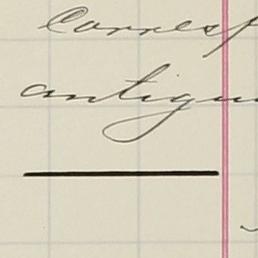 Corresp
antiqu